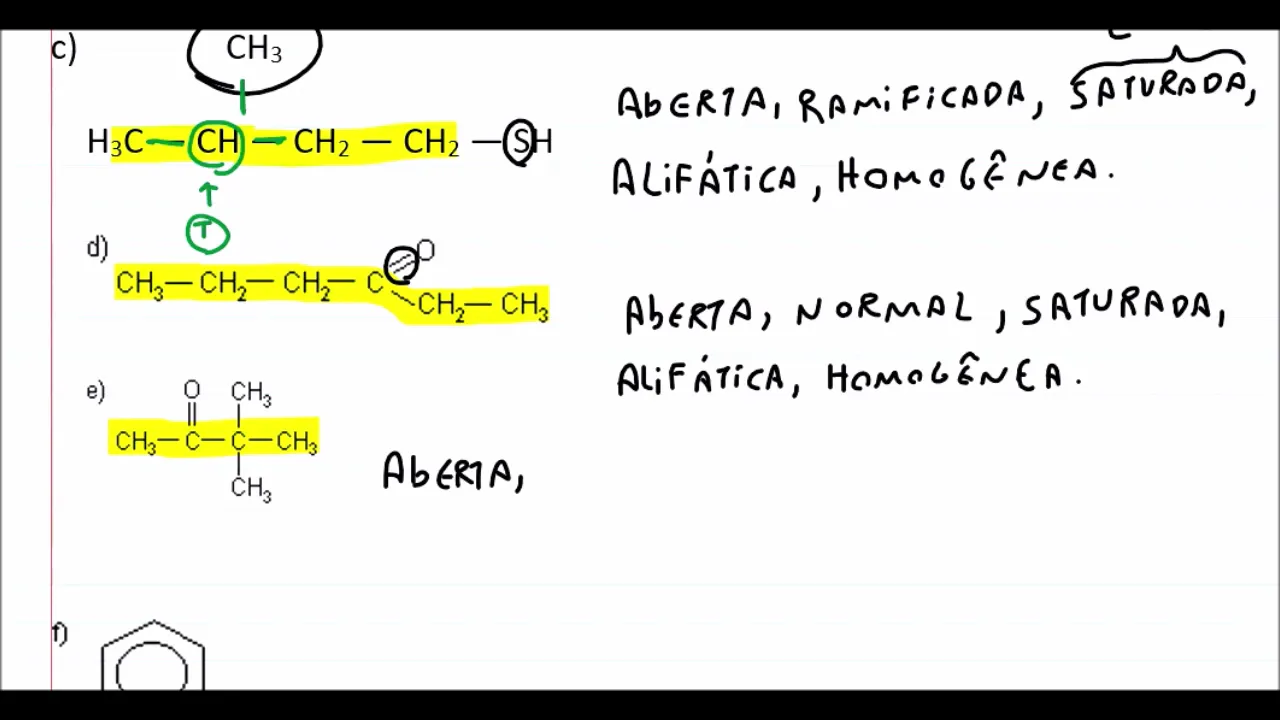 c)
CH₃
H₃C — CH — CH₂ — CH₂ — SH
T
AbERTA, RAMiFiCADA, SATURADA,
ALiFÁTiCA, HOMOGÊNEA.
d)
O
CH₃—CH₂—CH₂—C
CH₂—CH₃
AbERTA, NORMAL, SATURADA,
ALiFÁTiCA, HOMOGÊNEA.
e)
O CH₃
CH₃—C—C—CH₃
CH₃
AbERTA,
f)